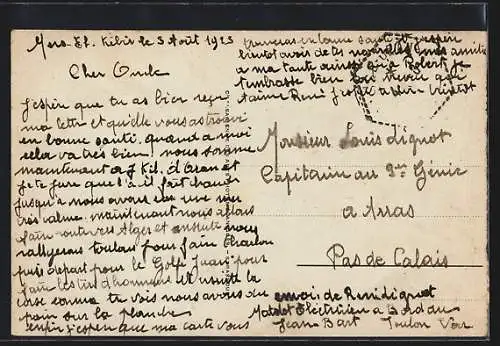 Mers-El. Kébir le 3 Août 1925
Cher Oncle
J'espère que tu as bien reçu
ma lettre et qu'elle vous a trouvé
en bonne santé. quand a moi
cela va très bien. nous somme
maintenant a 7 Kil. d'Oran et
je te jure que là il fait chaud
jusqu'a nous avons eu une mer
très calme. maintenant nous allons
faire route vers Alger et ensuite nous
rallyerons toulon pour faire charbon
puis départ pour le Golfe Juan pour
faire les tirs d'honneur et
comme tu vois nous avons du
pain sur la planche
enfin j'espère que ma carte vous
trouveras en bonne santé et j'espère
bientot avoir de tes nouvelles mes amitiés
a ma tante ainsi qu'a Robert je
t'embrasse bien ton neveu qui
t'aime René
a bientot
Monsieur Louis Luignot
Capitaine au Génie
a Arras
Pas de Calais
envoi de René
Matelot Électricien a Bord du
Jean Bart Toulon Var